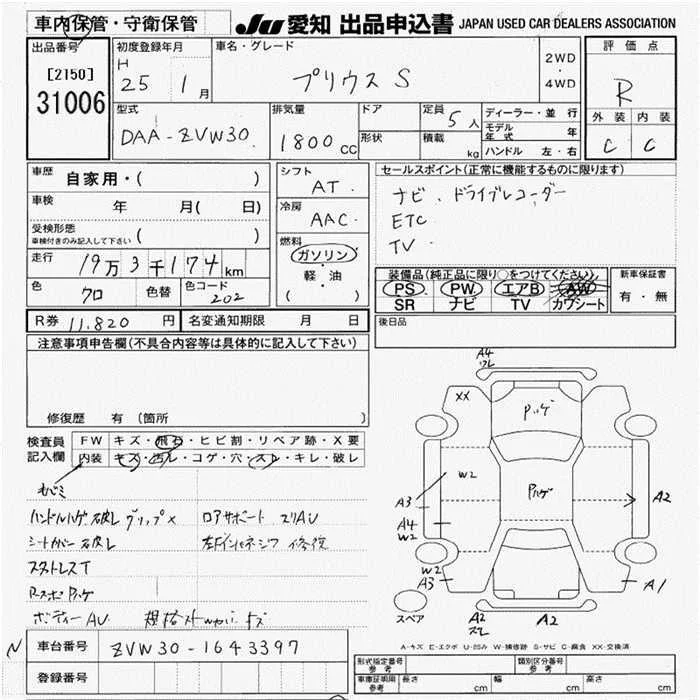 車内保管・守衛保管
JU 愛知 出品申込書 JAPAN USED CAR DEALERS ASSOCIATION
出品番号
[2150]
31006
初度登録年月
H
25 1 月
車名・グレード
プリウス S
2WD
・
4WD
評価点
R
外装 内装
C C
型式
DAA-ZVW30
排気量
1800 cc
ドア
形状
定員 5 人
積載 kg
ディーラー・並行
モデル年式 年
ハンドル 左・右
車歴 自家用・( )
車検 年 月( 日)
受検形態
車検付きのみ記入して下さい ( )
走行 19万3千174 km
色 クロ 色替 色コード 202
シフト
AT
冷房
AAC
燃料
ガソリン
・
軽・油
( )
セールスポイント(正常に機能するものに限ります)
ナビ . ドライブレコーダー
ETC
TV
装備品(純正品に限り○をつけてください)
PS PW エアB AW
SR ナビ TV カワシート
新車保証書
有・無
R券 11.820 円 名変通知期限 月 日
後日品
注意事項申告欄(不具合内容等は具体的に記入して下さい)
修復歴 有 (箇所
検査員
記入欄
FW キズ・飛石・ヒビ割・リペア跡・X要
内装 キズ・汚レ・コゲ・穴・スレ・キレ・破レ
ハンドルハゲ 破レ グリップ× ロアサポート スリAU
シートカバー破レ 左F インサイドパネ
スタトレスT
ボディーAU
A4
XX
W2
A3
A4
W2
W2
A3
A2
A1
A2
A2
スペア
A-キズ E-エクボ U-凹み W-補修跡 S-サビ C-腐食 XX-交換済
車台番号 ZVW30-1643397
登録番号
形式指定番号
参考
類別区分番号
参考
車庫証明用
参考
長さ cm 幅 cm 高さ cm